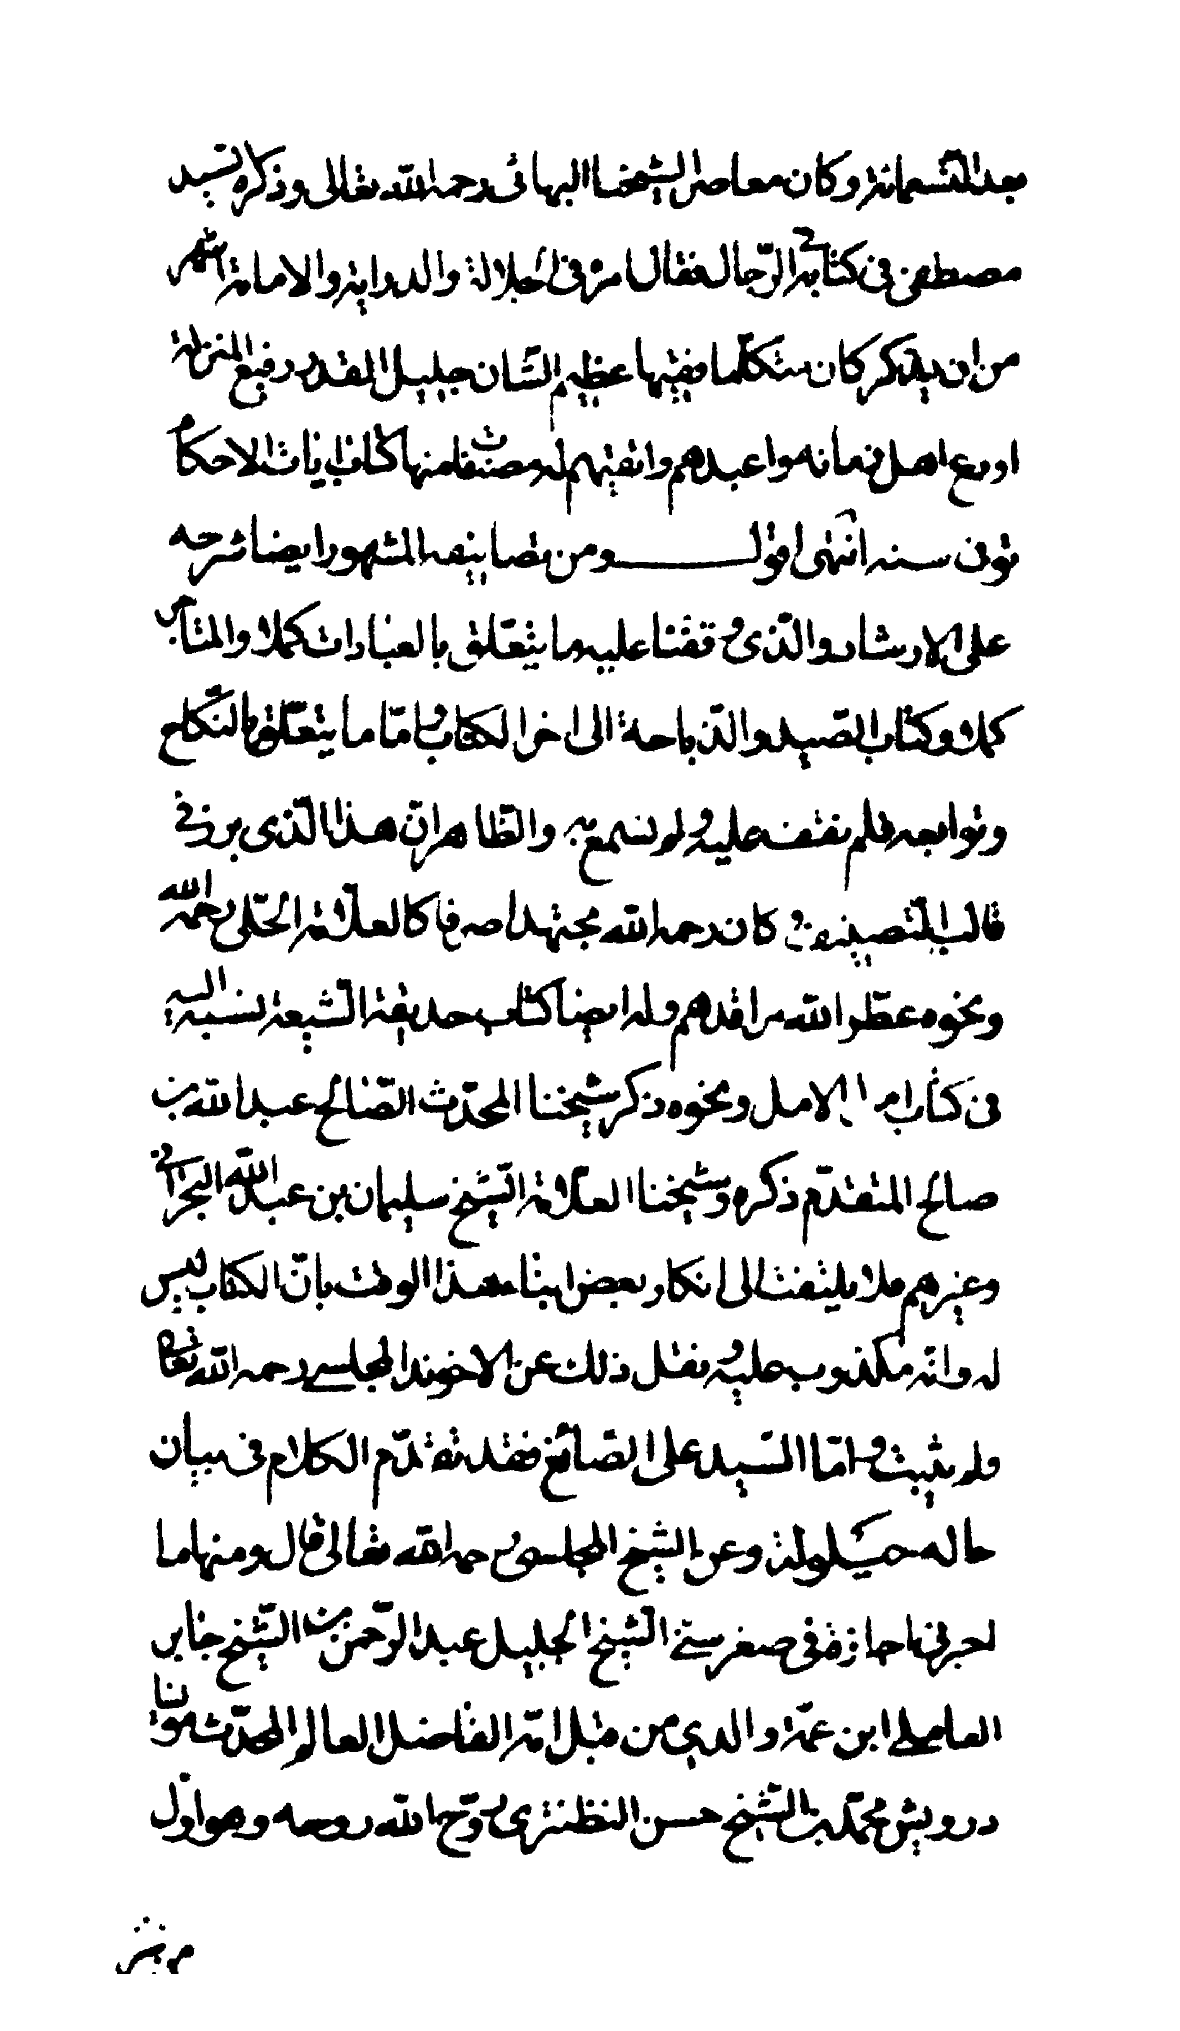 بعد التسعمائة وكان معاصرا لشيخنا البهائي رحمه الله تعالى وذكره السيد
مصطفى في كتابه الرجال فقال امره في الجلالة والدراية والامانة اشهر
من ان يذكر كان متكلما فقيها عظيم الشان جليل القدر رفيع المنزلة
اورع اهل زمانه واعبدهم واتقيهم له مصنفات منها كتاب ايات الاحكام
توفى سنه انتهى اقول ومن تصانيفه المشهور ايضا شرحه
على الارشاد والذي وقفنا عليه ما يتعلق بالعبادات كملا والمتاجر
كملا وكتاب الصيد والذباحة الى اخر الكتاب واما ما يتعلق بالنكاح
وتوابعه فلم نقف عليه ولم نسمع به والظاهر ان هذا الذي برز في
قالب التصنيف وكان رحمه الله مجتهدا صرفا كالعلامة الحلي رحمه الله
ونحوه عطر الله مراقدهم وله ايضا كتاب حديقة الشيعة نسبه اليه
في كتاب امل الامل ونحوه ذكر شيخنا المحدث الصالح عبد الله بن
صالح المتقدم ذكره وشيخنا العلامة الشيخ سليمان بن عبد الله البحراني
وغيرهم فلا يلتفت الى انكار بعض ابناء هذا الوقت بان الكتاب ليس
له وانه مكذوب عليه ونقل ذلك عن الاخوند المجلسي رحمه الله تعالى
ولم يثبت واما السيد علي الصائغ فقد تقدم الكلام في بيان
حاله حيلولة وعن الشيخ المجلسي رحمه الله تعالى قال ومنها ما
اخبرني باجازة في صغر سني الشيخ الجليل عبد الرحمن بن الشيخ جابر
العاملي ابن عمة والدي من قبل امه الفاضل العالم المحدث مولانا
درويش محمد بن الشيخ حسن النطنزي روح الله روحه وهو اول
من نشر